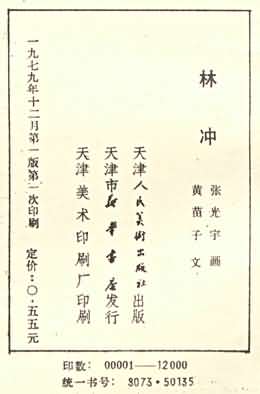 林冲
张光宇画
黄苗子文
天津人民美術出版社出版
天津市新华书店发行
天津美术印刷厂印刷
一九七九年十二月第一版第一次印刷
定价：〇·五五元
印数：00001——12000
统一书号：8073·50135